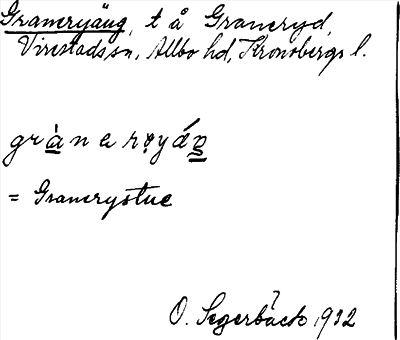 Graneryäng, t å Graneryd,
Virestads sn, Allbo hd, Kronobergs l.
grànerọyáŋ
= Granerystue
O. Segerbäck 1932